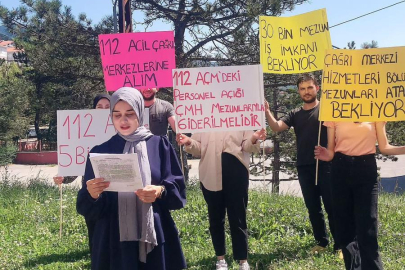 112 ACİL ÇAĞRI
MERKEZLERİNE
ALIM
112 AÇM'DEKİ
PERSONEL AÇIĞI
ÇMH MEZUNLARIYLA
GİDERİLMELİDİR
30 BİN MEZUN
İŞ İMKANI
BEKLİYOR
ÇAĞRI MERKEZİ
HİZMETLERİ BÖLÜ
MEZUNLARI ATA
BEKLİYOR
112 A
5 B